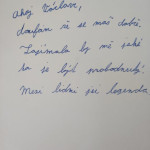 Ahoj Václave,
doufám že se máš dobře.
Zajímala by mě jaké
to je být svobodný?
Mezi lidmi jsi legenda